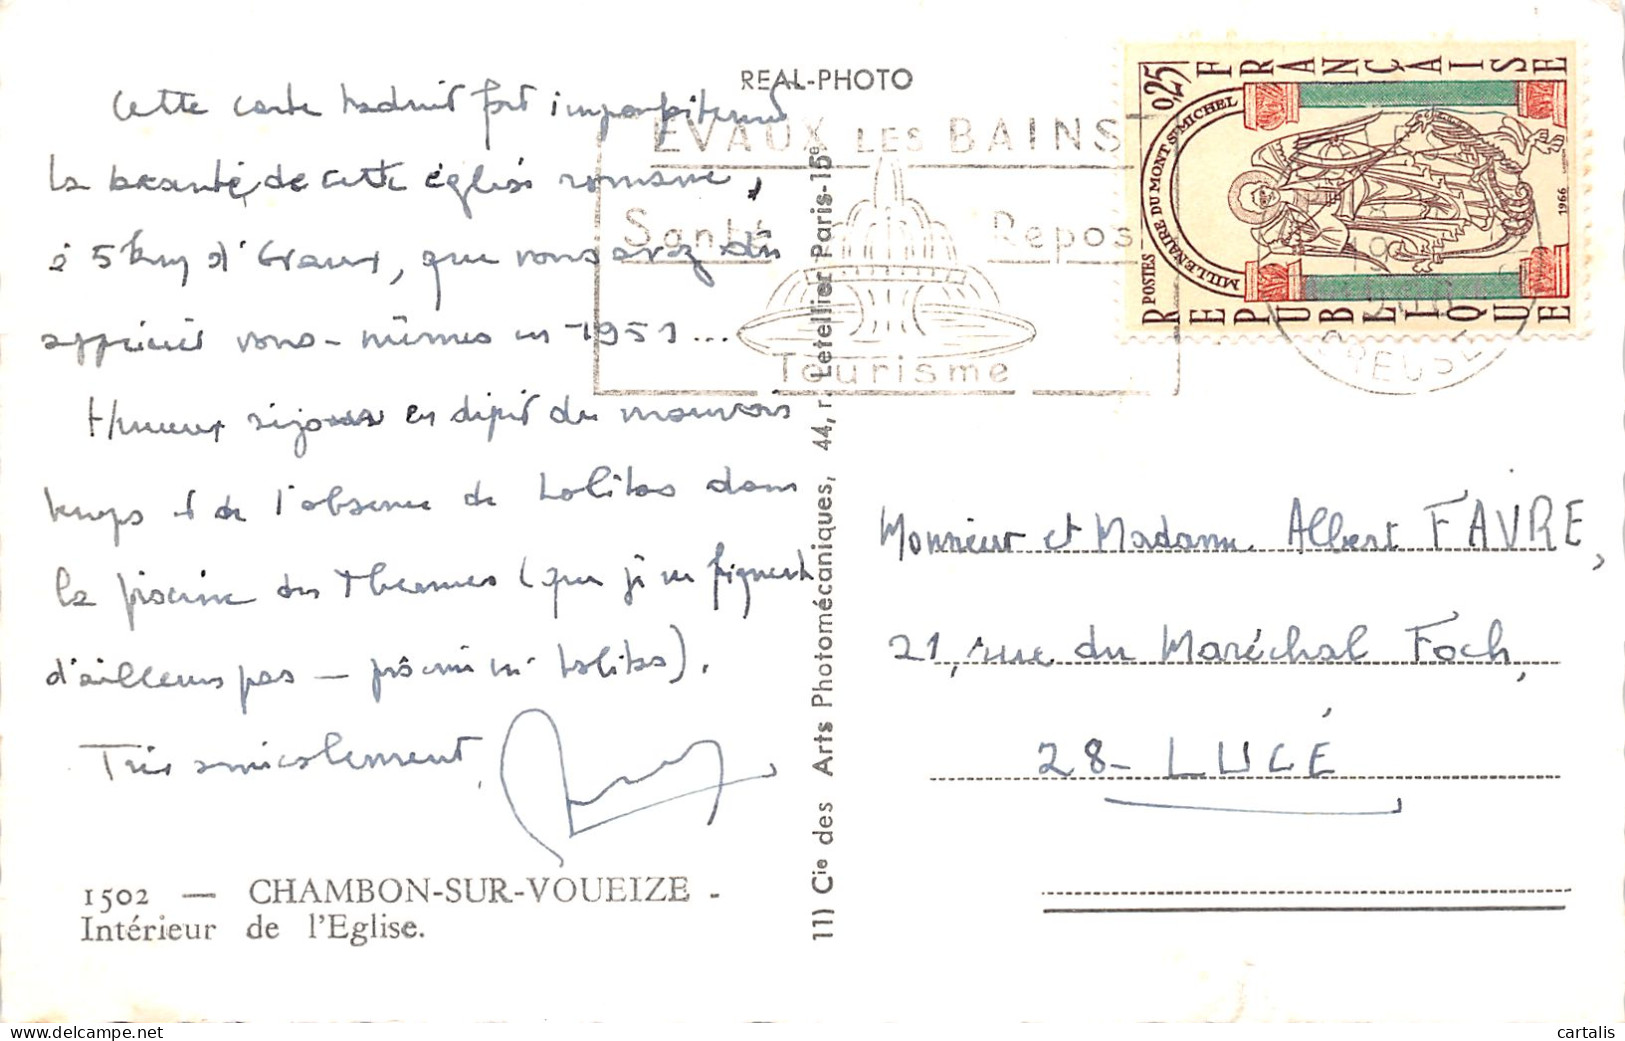 Cette carte traduit fort imparfaitement
la beauté de cette église romane,
à 5 km d'Evaux, que vous avez dû
apprécier vous-mêmes en 1953...
Heureux séjour en dépit du mauvais
temps et de l'absence de Lolitas dans
la piscine des Thermes (que je ne fréquente
d'ailleurs pas — piscine ni Lolitas).
Très amicalement,
1502 — CHAMBON-SUR-VOUEIZE -
Intérieur de l'Eglise.
REAL-PHOTO
11) Cie des Arts Photomécaniques, 44, r. Letellier Paris-15e
EVAUX LES BAINS
Santé Repos
Tourisme
CREUSE
REPUBLIQUE FRANÇAISE
POSTES 0,25
MILLENAIRE DU MONT ST MICHEL
1966
Monsieur et Madame Albert FAVRE,
21, rue du Maréchal Foch,
28 - LUCÉ
www.delcampe.net
cartalis